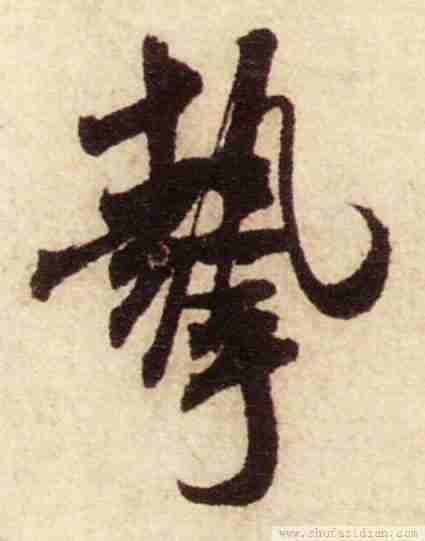 摯
www.shufazidian.com